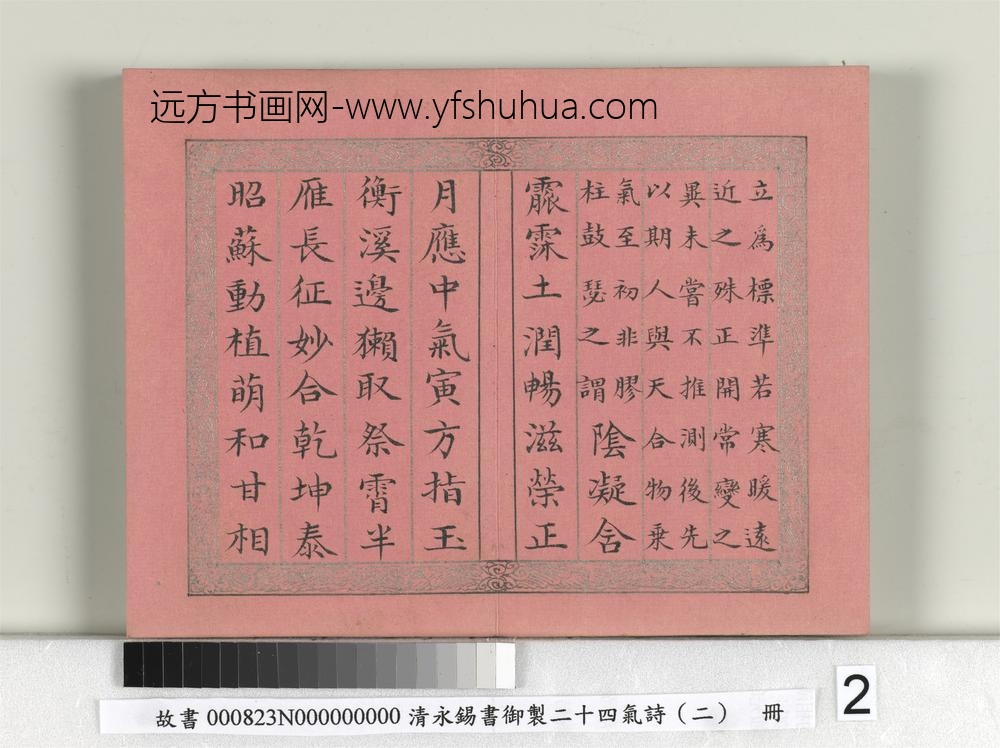 远方书画网-www.yfshuhua.com
立為標準若寒暖遠
近之殊正開常變之
異未嘗不推測後先
以期人與天合物乗
氣至初非膠
柱鼓瑟之謂
陰凝含
霡霂土潤暢滋榮正
月應中氣寅方指玉
衡溪邊獺取祭霄半
雁長征妙合乾坤泰
昭蘇動植萌和甘相
故書 000823N000000000 清永錫書御製二十四氣詩（二） 冊
2